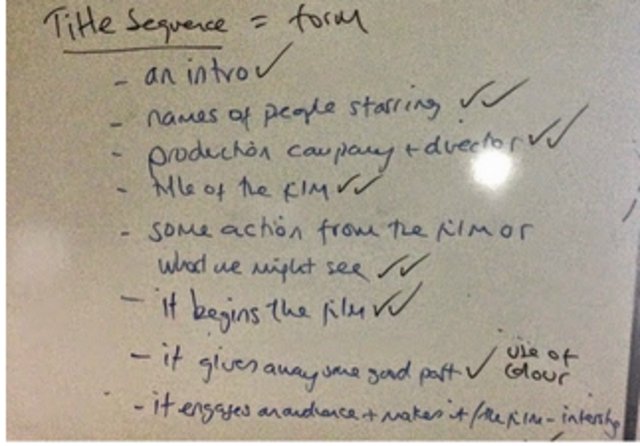 Title Sequence = form
- an intro ✓
- names of people starring ✓✓
- production company + director ✓✓
- title of the film ✓✓
- some action from the film or
what we might see ✓✓
- it begins the film ✓✓
- it gives away some good part ✓ use of
colour
- it engages an audience + makes it / the film -